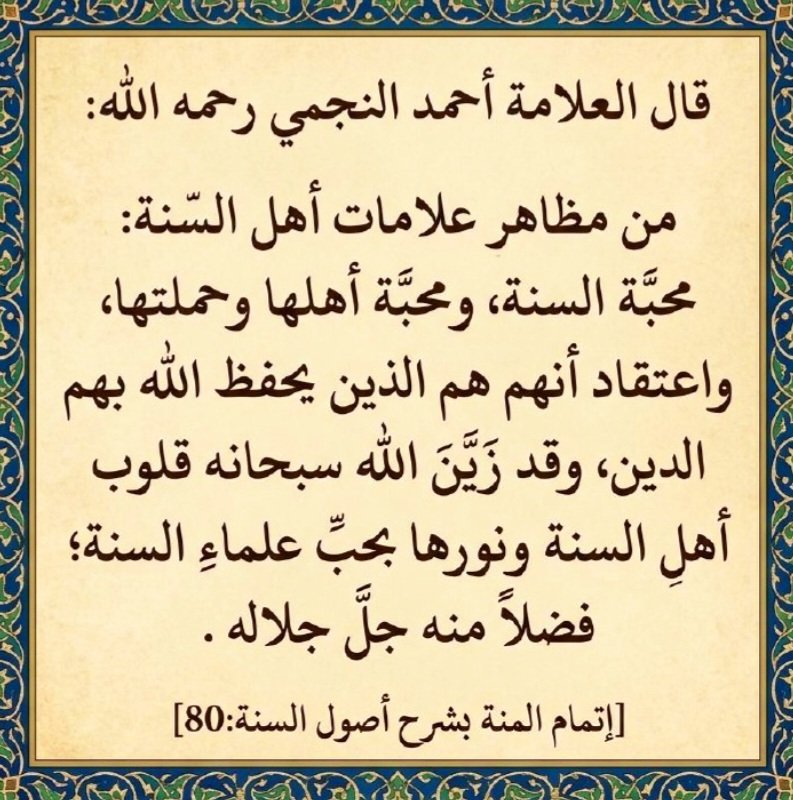 قال العلامة أحمد النجمي رحمه الله:
من مظاهر علامات أهل السّنة:
محبَّة السنة، ومحبَّة أهلها وحملتها،
واعتقاد أنهم هم الذين يحفظ الله بهم
الدين، وقد زَيَّنَ الله سبحانه قلوب
أهلِ السنة ونورها بحبِّ علماءِ السنة؛
فضلاً منه جلَّ جلاله .
[إتمام المنة بشرح أصول السنة:80]